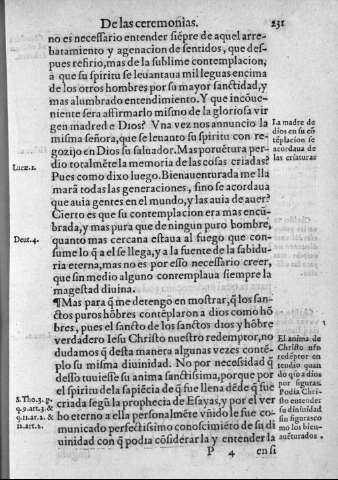 De las ceremonias. 231
no es necessario entender siẽpre de aquel arre-
batamiento y agenacion de sentidos, que des-
pues refirio, mas de la sublime contemplacion,
a que su spiritu se leuantaua mil leguas encima
de los otros hombres por su mayor sanctidad, y
mas alumbrado entendimiento. Y que incõue-
niente sera affirmarlo mismo de la gloriosa vir
gen madred e Dios? Vna vez nos annuncio la
misma señora, que se leuanto su spiritu con re-
gozijo en Dios su saluador. Mas por uẽtura per-
dio totalmẽte la memoria de las cosas criadas?
Pues como dixo luego. Bienauenturada me lla
marã todas las generaciones, sino se acordaua
que auia gentes en el mundo, y las auia de auer?
Cierto es que su contemplacion era mas encũ-
brada, y mas pura que de ningun puro hombre,
quanto mas cercana estaua al fuego que con-
sume lo q̃ a el se llega, y a la fuente de la sabidu-
ria eterna, mas no es por esso necessario creer,
que sin medio alguno contemplaua siempre la
magestad diuina.
¶Mas para q̃ me detengo en mostrar, q̃ los san-
ctos puros hõbres contẽplaron a dios como hõ
bres, pues el sancto de los sanctos dios y hõbre
verdadero Iesu Christo nuestro redemptor, no
dudamos q̃ desta manera algunas vezes contẽ-
plo su misma diuinidad. No por necesidad q̃
desso tuuiesse su anima sanctissima, porque por
el spiritu de la sapiẽcia de q̃ fue llena dẽde q̃ fue
criada segũ la prophecia de Esayas, y por el ver
bo eterno a ella personalmẽte vñido le fue co-
municado perfectissimo conoscimiẽto de su di
uinidad con q̃ podia cõsiderarla y entender la
P 4 en si
La madre de
dios en su cõ
tẽplacion se
acordaua de
las criaturas
Lucæ. 1.
Deut. 4.
El anima de
Christo nr̃o
redẽptor en
tendio quan
do q̃so a dios
por figuras.
Podia Chri-
sto entender
su diuinidad
sin figuras co
mo los bien-
auẽturados.
S. Tho. 3. p.
q. 9. art. 3. &
q. 11. ar. 2. &
12. art. 2.